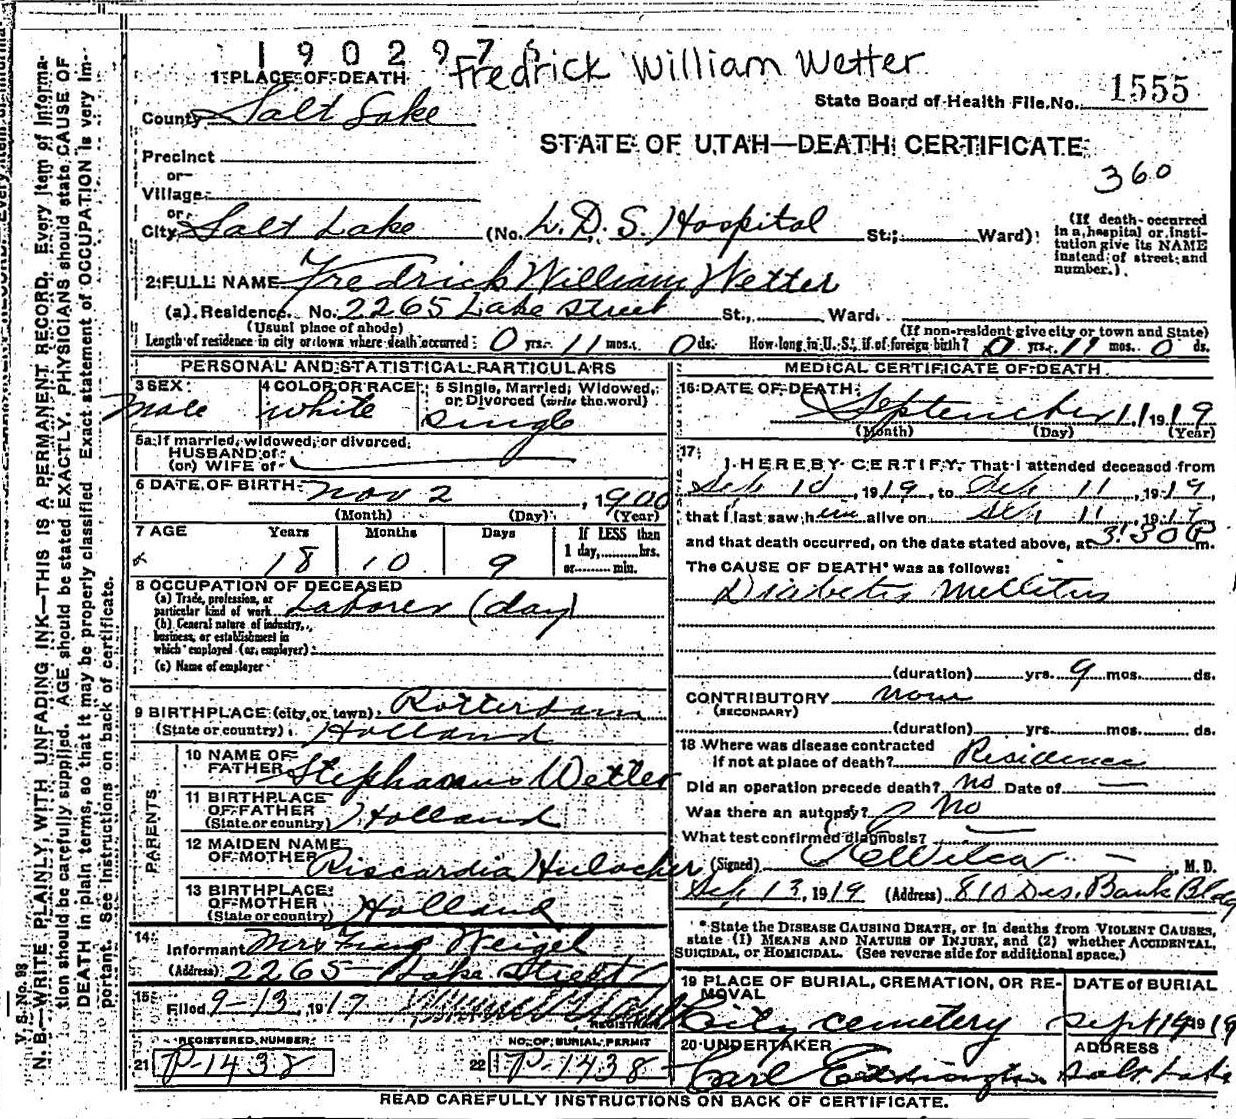 1902975
Fredrick William Wetter
1 PLACE OF DEATH
State Board of Health File No. 1555
County Salt Lake
STATE OF UTAH—DEATH CERTIFICATE
Precinct
or
360
Village
or
City Salt Lake (No. L. D. S. Hospital St.; Ward)
(If death occurred in a hospital or institution give its NAME instead of street and number.)
2 FULL NAME Fredrick William Wetter
(a) Residence. No. 2265 Lake Street St., Ward.
(Usual place of abode) (If non-resident give city or town and State)
Length of residence in city or town where death occurred 0 yrs. 11 mos. 0 ds. How long in U. S., if of foreign birth? 0 yrs. 11 mos. 0 ds.
PERSONAL AND STATISTICAL PARTICULARS
3 SEX male
4 COLOR OR RACE white
5 Single, Married, Widowed, or Divorced (write the word) single
5a If married, widowed, or divorced
HUSBAND of
(or) WIFE of
6 DATE OF BIRTH Nov 2, 1900
(Month) (Day) (Year)
7 AGE Years Months Days If LESS than
1 day, hrs.
18 10 9 or min.
8 OCCUPATION OF DECEASED
(a) Trade, profession, or particular kind of work Laborer (day)
(b) General nature of industry, business, or establishment in which employed (or employer)
(c) Name of employer
9 BIRTHPLACE (city or town) Rotterdam
(State or country) Holland
PARENTS
10 NAME OF FATHER Stephanus Wetter
11 BIRTHPLACE OF FATHER (State or country) Holland
12 MAIDEN NAME OF MOTHER Riscardia
13 BIRTHPLACE OF MOTHER (State or country) Holland
14 Informant Mrs Weigel
(Address) 2265 Lake Street
15 Filed 9-13, 1917
REGISTRAR
REGISTERED NUMBER
21 P-1438
NO. OF BURIAL PERMIT
22 P-1438
MEDICAL CERTIFICATE OF DEATH
16 DATE OF DEATH September 11, 1919
(Month) (Day) (Year)
17 I HEREBY CERTIFY, That I attended deceased from
Sep 10, 1919, to Sep 11, 1919,
that I last saw him alive on Sep 11, 1919
and that death occurred, on the date stated above, at 3:30 P m.
The CAUSE OF DEATH* was as follows:
Diabetis Mellitus
(duration) yrs. 9 mos. ds.
CONTRIBUTORY none
(SECONDARY)
(duration) yrs. mos. ds.
18 Where was disease contracted
if not at place of death? Residence
Did an operation precede death? no Date of —
Was there an autopsy? No
What test confirmed diagnosis? —
(Signed) M. D.
Sep 13, 1919 (Address) 810 Des. Bank Bldg
*State the DISEASE CAUSING DEATH, or in deaths from VIOLENT CAUSES, state (1) MEANS AND NATURE OF INJURY, and (2) whether ACCIDENTAL, SUICIDAL, or HOMICIDAL. (See reverse side for additional space.)
19 PLACE OF BURIAL, CREMATION, OR REMOVAL City cemetery
DATE of BURIAL Sept 14 1919
20 UNDERTAKER Carl
ADDRESS Salt Lake
READ CAREFULLY INSTRUCTIONS ON BACK OF CERTIFICATE.
V. S. No. 98
N. B.—WRITE PLAINLY, WITH UNFADING INK—THIS IS A PERMANENT RECORD. Every item of information should be carefully supplied. AGE should be stated EXACTLY. PHYSICIANS should state CAUSE OF DEATH in plain terms, so that it may be properly classified. Exact statement of OCCUPATION is very important. See instructions on back of certificate.